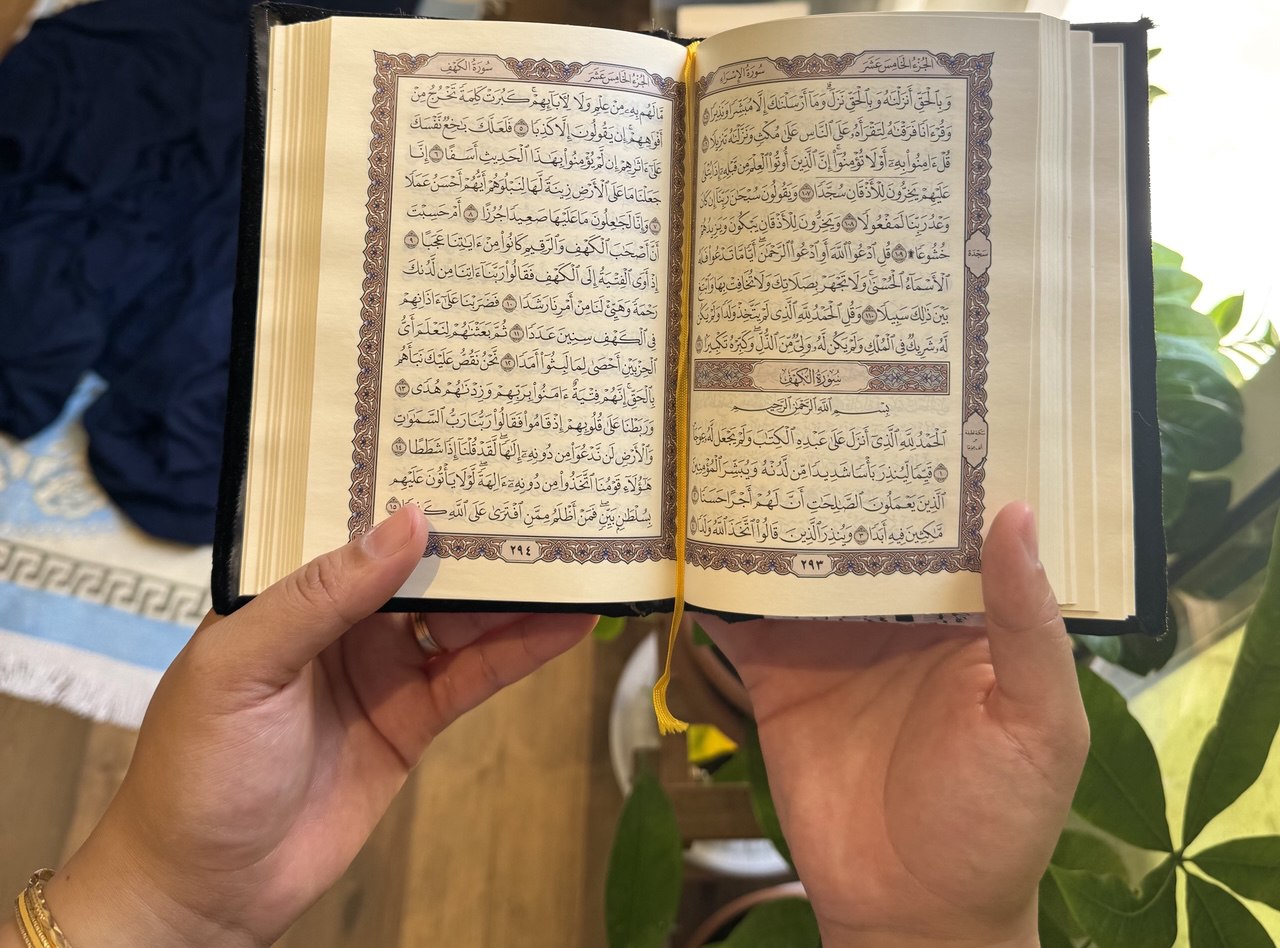 سُورَةُ الإِسْرَاءِ
الجُزْءُ الخَامِسَ عَشَرَ
وَبِٱلْحَقِّ أَنزَلْنَٰهُ وَبِٱلْحَقِّ نَزَلَ ۗ وَمَآ أَرْسَلْنَٰكَ إِلَّا مُبَشِّرًا وَنَذِيرًا
وَقُرْءَانًا فَرَقْنَٰهُ لِتَقْرَأَهُۥ عَلَى ٱلنَّاسِ عَلَىٰ مُكْثٍ وَنَزَّلْنَٰهُ تَنزِيلًا
قُلْ ءَامِنُوا۟ بِهِۦٓ أَوْ لَا تُؤْمِنُوٓا۟ ۚ إِنَّ ٱلَّذِينَ أُوتُوا۟ ٱلْعِلْمَ مِن قَبْلِهِۦٓ إِذَا يُتْلَىٰ
عَلَيْهِمْ يَخِرُّونَ لِلْأَذْقَانِ سُجَّدًا ١٠٧ وَيَقُولُونَ سُبْحَٰنَ رَبِّنَآ إِن كَانَ
وَعْدُ رَبِّنَا لَمَفْعُولًا ١٠٨ وَيَخِرُّونَ لِلْأَذْقَانِ يَبْكُونَ وَيَزِيدُهُمْ
خُشُوعًا ۩ ١٠٩ قُلِ ٱدْعُوا۟ ٱللَّهَ أَوِ ٱدْعُوا۟ ٱلرَّحْمَٰنَ ۖ أَيًّا مَّا تَدْعُوا۟ فَلَهُ
ٱلْأَسْمَآءُ ٱلْحُسْنَىٰ ۚ وَلَا تَجْهَرْ بِصَلَاتِكَ وَلَا تُخَافِتْ بِهَا وَٱبْتَغِ
بَيْنَ ذَٰلِكَ سَبِيلًا ١١٠ وَقُلِ ٱلْحَمْدُ لِلَّهِ ٱلَّذِى لَمْ يَتَّخِذْ وَلَدًا وَلَمْ يَكُن
لَّهُۥ شَرِيكٌ فِى ٱلْمُلْكِ وَلَمْ يَكُن لَّهُۥ وَلِىٌّ مِّنَ ٱلذُّلِّ ۖ وَكَبِّرْهُ تَكْبِيرًۢا
سُورَةُ الكَهْفِ
بِسْمِ ٱللَّهِ ٱلرَّحْمَٰنِ ٱلرَّحِيمِ
ٱلْحَمْدُ لِلَّهِ ٱلَّذِىٓ أَنزَلَ عَلَىٰ عَبْدِهِ ٱلْكِتَٰبَ وَلَمْ يَجْعَل لَّهُۥ عِوَجَا
١ قَيِّمًا لِّيُنذِرَ بَأْسًا شَدِيدًا مِّن لَّدُنْهُ وَيُبَشِّرَ ٱلْمُؤْمِنِينَ
ٱلَّذِينَ يَعْمَلُونَ ٱلصَّٰلِحَٰتِ أَنَّ لَهُمْ أَجْرًا حَسَنًا
مَّٰكِثِينَ فِيهِ أَبَدًا ٣ وَيُنذِرَ ٱلَّذِينَ قَالُوا۟ ٱتَّخَذَ ٱللَّهُ وَلَدًا
سَجْدَة
٢٩٣
سُورَةُ الكَهْفِ
الجُزْءُ الخَامِسَ عَشَرَ
مَّا لَهُم بِهِۦ مِنْ عِلْمٍ وَلَا لِءَابَآئِهِمْ ۚ كَبُرَتْ كَلِمَةً تَخْرُجُ مِنْ
أَفْوَٰهِهِمْ ۚ إِن يَقُولُونَ إِلَّا كَذِبًا ٥ فَلَعَلَّكَ بَٰخِعٌ نَّفْسَكَ
عَلَىٰٓ ءَاثَٰرِهِمْ إِن لَّمْ يُؤْمِنُوا۟ بِهَٰذَا ٱلْحَدِيثِ أَسَفًا ٦ إِنَّا
جَعَلْنَا مَا عَلَى ٱلْأَرْضِ زِينَةً لَّهَا لِنَبْلُوَهُمْ أَيُّهُمْ أَحْسَنُ عَمَلًا
٧ وَإِنَّا لَجَٰعِلُونَ مَا عَلَيْهَا صَعِيدًا جُرُزًا ٨ أَمْ حَسِبْتَ
أَنَّ أَصْحَٰبَ ٱلْكَهْفِ وَٱلرَّقِيمِ كَانُوا۟ مِنْ ءَايَٰتِنَا عَجَبًا ٩
إِذْ أَوَى ٱلْفِتْيَةُ إِلَى ٱلْكَهْفِ فَقَالُوا۟ رَبَّنَآ ءَاتِنَا مِن لَّدُنكَ
رَحْمَةً وَهَيِّئْ لَنَا مِنْ أَمْرِنَا رَشَدًا ١٠ فَضَرَبْنَا عَلَىٰٓ ءَاذَانِهِمْ
فِى ٱلْكَهْفِ سِنِينَ عَدَدًا ١١ ثُمَّ بَعَثْنَٰهُمْ لِنَعْلَمَ أَىُّ
ٱلْحِزْبَيْنِ أَحْصَىٰ لِمَا لَبِثُوٓا۟ أَمَدًا ١٢ نَّحْنُ نَقُصُّ عَلَيْكَ نَبَأَهُم
بِٱلْحَقِّ ۚ إِنَّهُمْ فِتْيَةٌ ءَامَنُوا۟ بِرَبِّهِمْ وَزِدْنَٰهُمْ هُدًى ١٣
وَرَبَطْنَا عَلَىٰ قُلُوبِهِمْ إِذْ قَامُوا۟ فَقَالُوا۟ رَبُّنَا رَبُّ ٱلسَّمَٰوَٰتِ
وَٱلْأَرْضِ لَن نَّدْعُوَا۟ مِن دُونِهِۦٓ إِلَٰهًا ۖ لَّقَدْ قُلْنَآ إِذًا شَطَطًا ١٤
هَٰٓؤُلَآءِ قَوْمُنَا ٱتَّخَذُوا۟ مِن دُونِهِۦٓ ءَالِهَةً ۖ لَّوْلَا يَأْتُونَ عَلَيْهِم
بِسُلْطَٰنٍۭ بَيِّنٍ ۖ فَمَنْ أَظْلَمُ مِمَّنِ ٱفْتَرَىٰ عَلَى ٱللَّهِ ١٥
٢٩٤